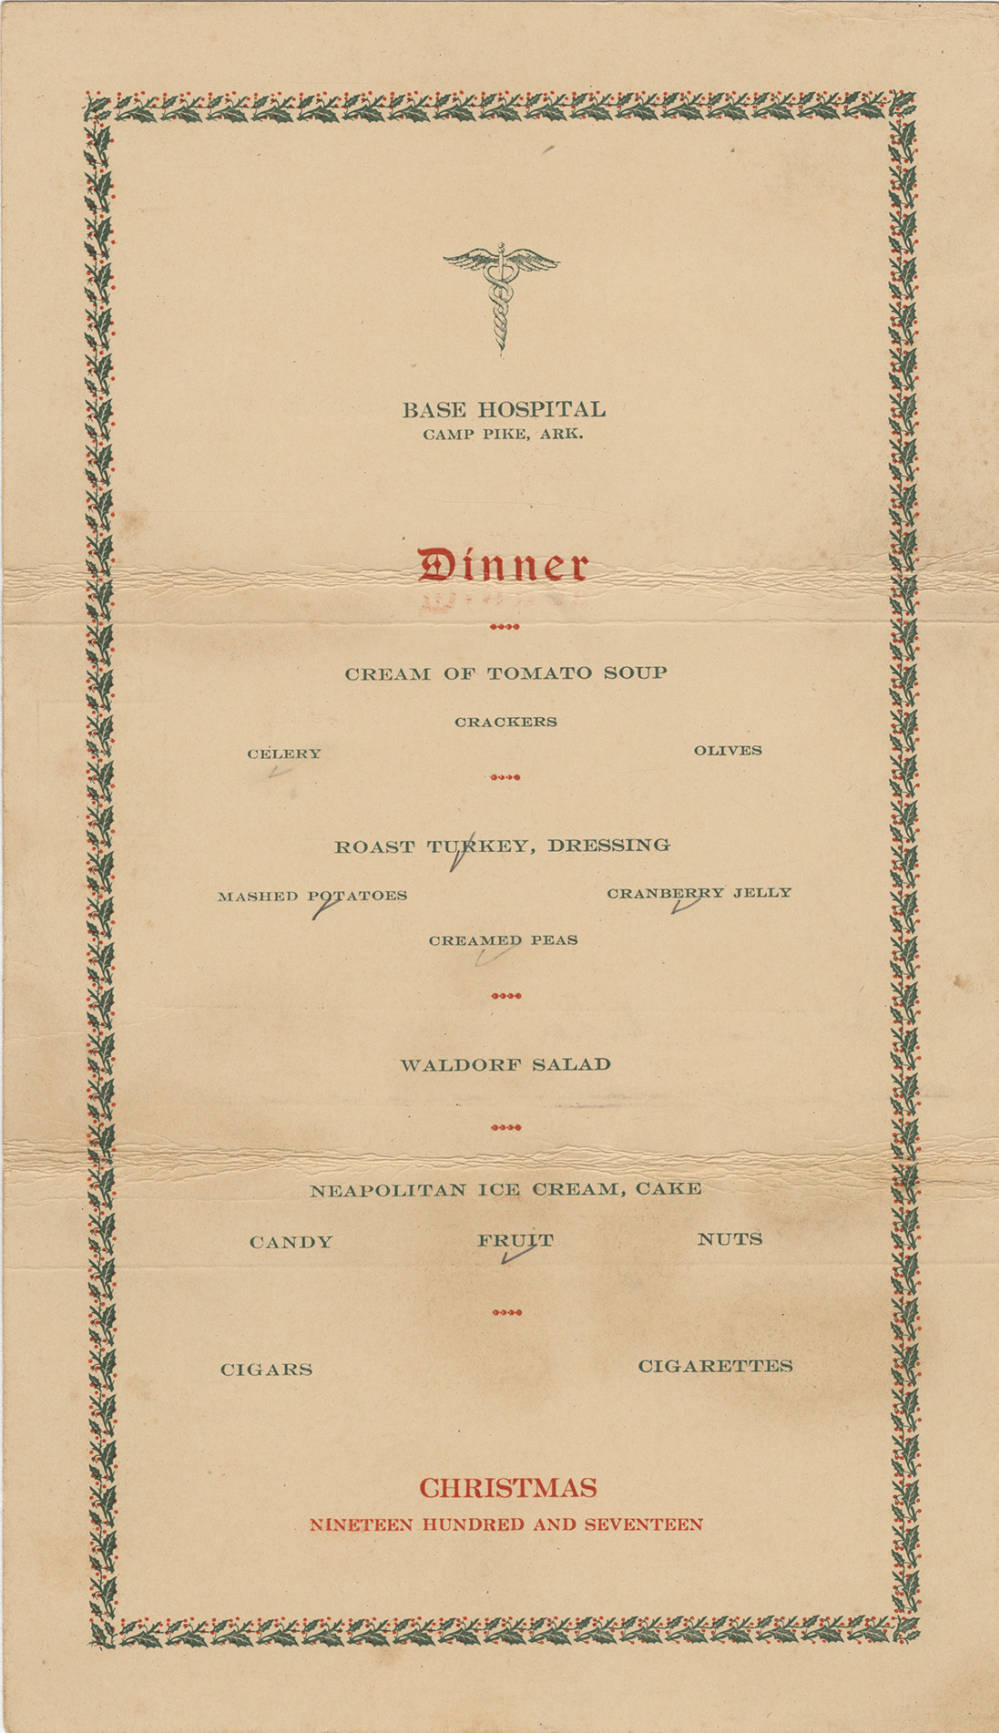 BASE HOSPITAL
CAMP PIKE, ARK.
Dinner
CREAM OF TOMATO SOUP
CRACKERS
CELERY OLIVES
ROAST TURKEY, DRESSING
MASHED POTATOES CRANBERRY JELLY
CREAMED PEAS
WALDORF SALAD
NEAPOLITAN ICE CREAM, CAKE
CANDY FRUIT NUTS
CIGARS CIGARETTES
CHRISTMAS
NINETEEN HUNDRED AND SEVENTEEN